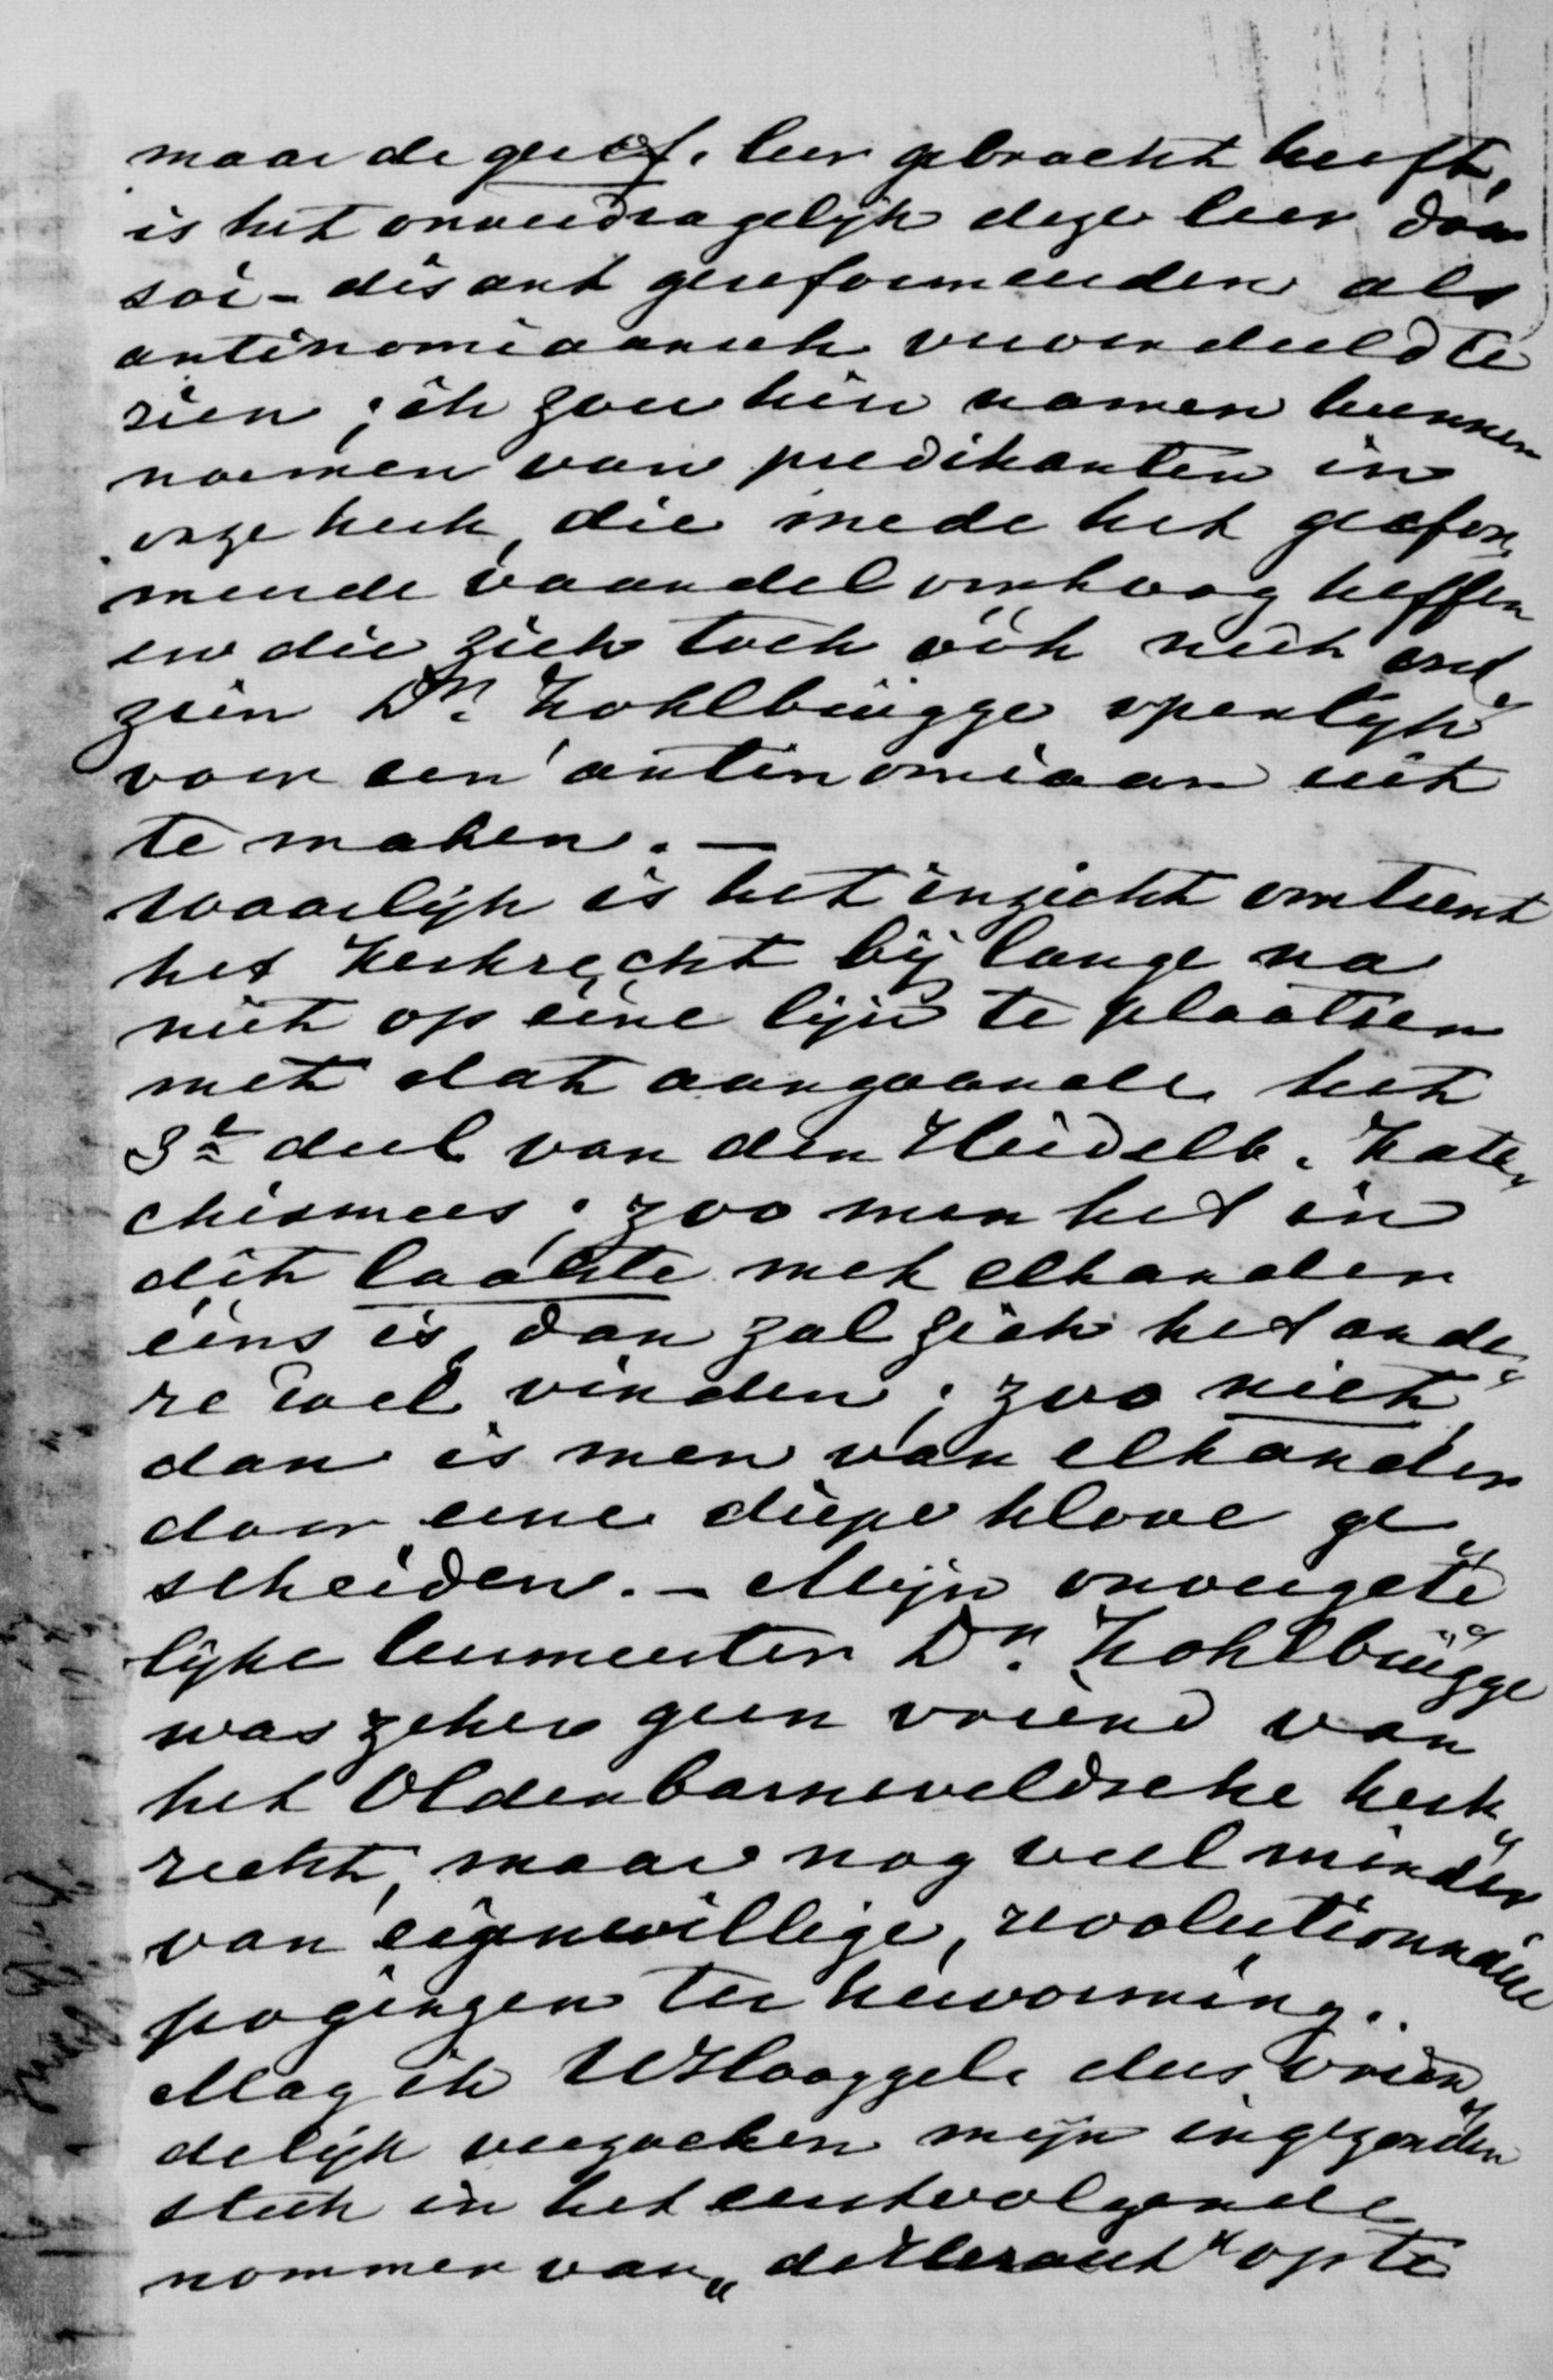 maar de geref. leer gebracht heeft,
is het onverdragelijk deze leer door
soi-disant gereformeerden als
antinomiaansch veroordeeld te
zien; ik zou hier namen kunnen
noemen van predikanten in
onze kerk, die mede het gerefor„
meerde vaandel omhoog heffen
en die zich toch ook niet ont„
zien Dr. Kohlbrügge openlijk
voor een antinomiaan uit
te maken. —
Waarlijk is het inzicht omtrent
het Kerkrecht bij lange na
niet op eene lijn te plaatsen
met dat aangaande het
3e deel van den Heidelb. Kate„
chismus; zoo men het in
dit laatste met elkander
eens is, dan zal zich het ande„
re wel vinden; zoo niet,
dan is men van elkander
door eene diepe klove ge„
scheiden. – Mijn onvergete„
lijke leermeester Dr. Kohlbrügge
was zeker geen vriend van
het Oldenbarneveldsche kerk„
recht, maar nog veel minder
van eigenwillige, revolutionnaire
pogingen ter hervorming.
Mag ik UHooggel. dus vrien„
delijk verzoeken mijn ingezonden
stuk in het eerstvolgende
nommer van „de Heraut" op te